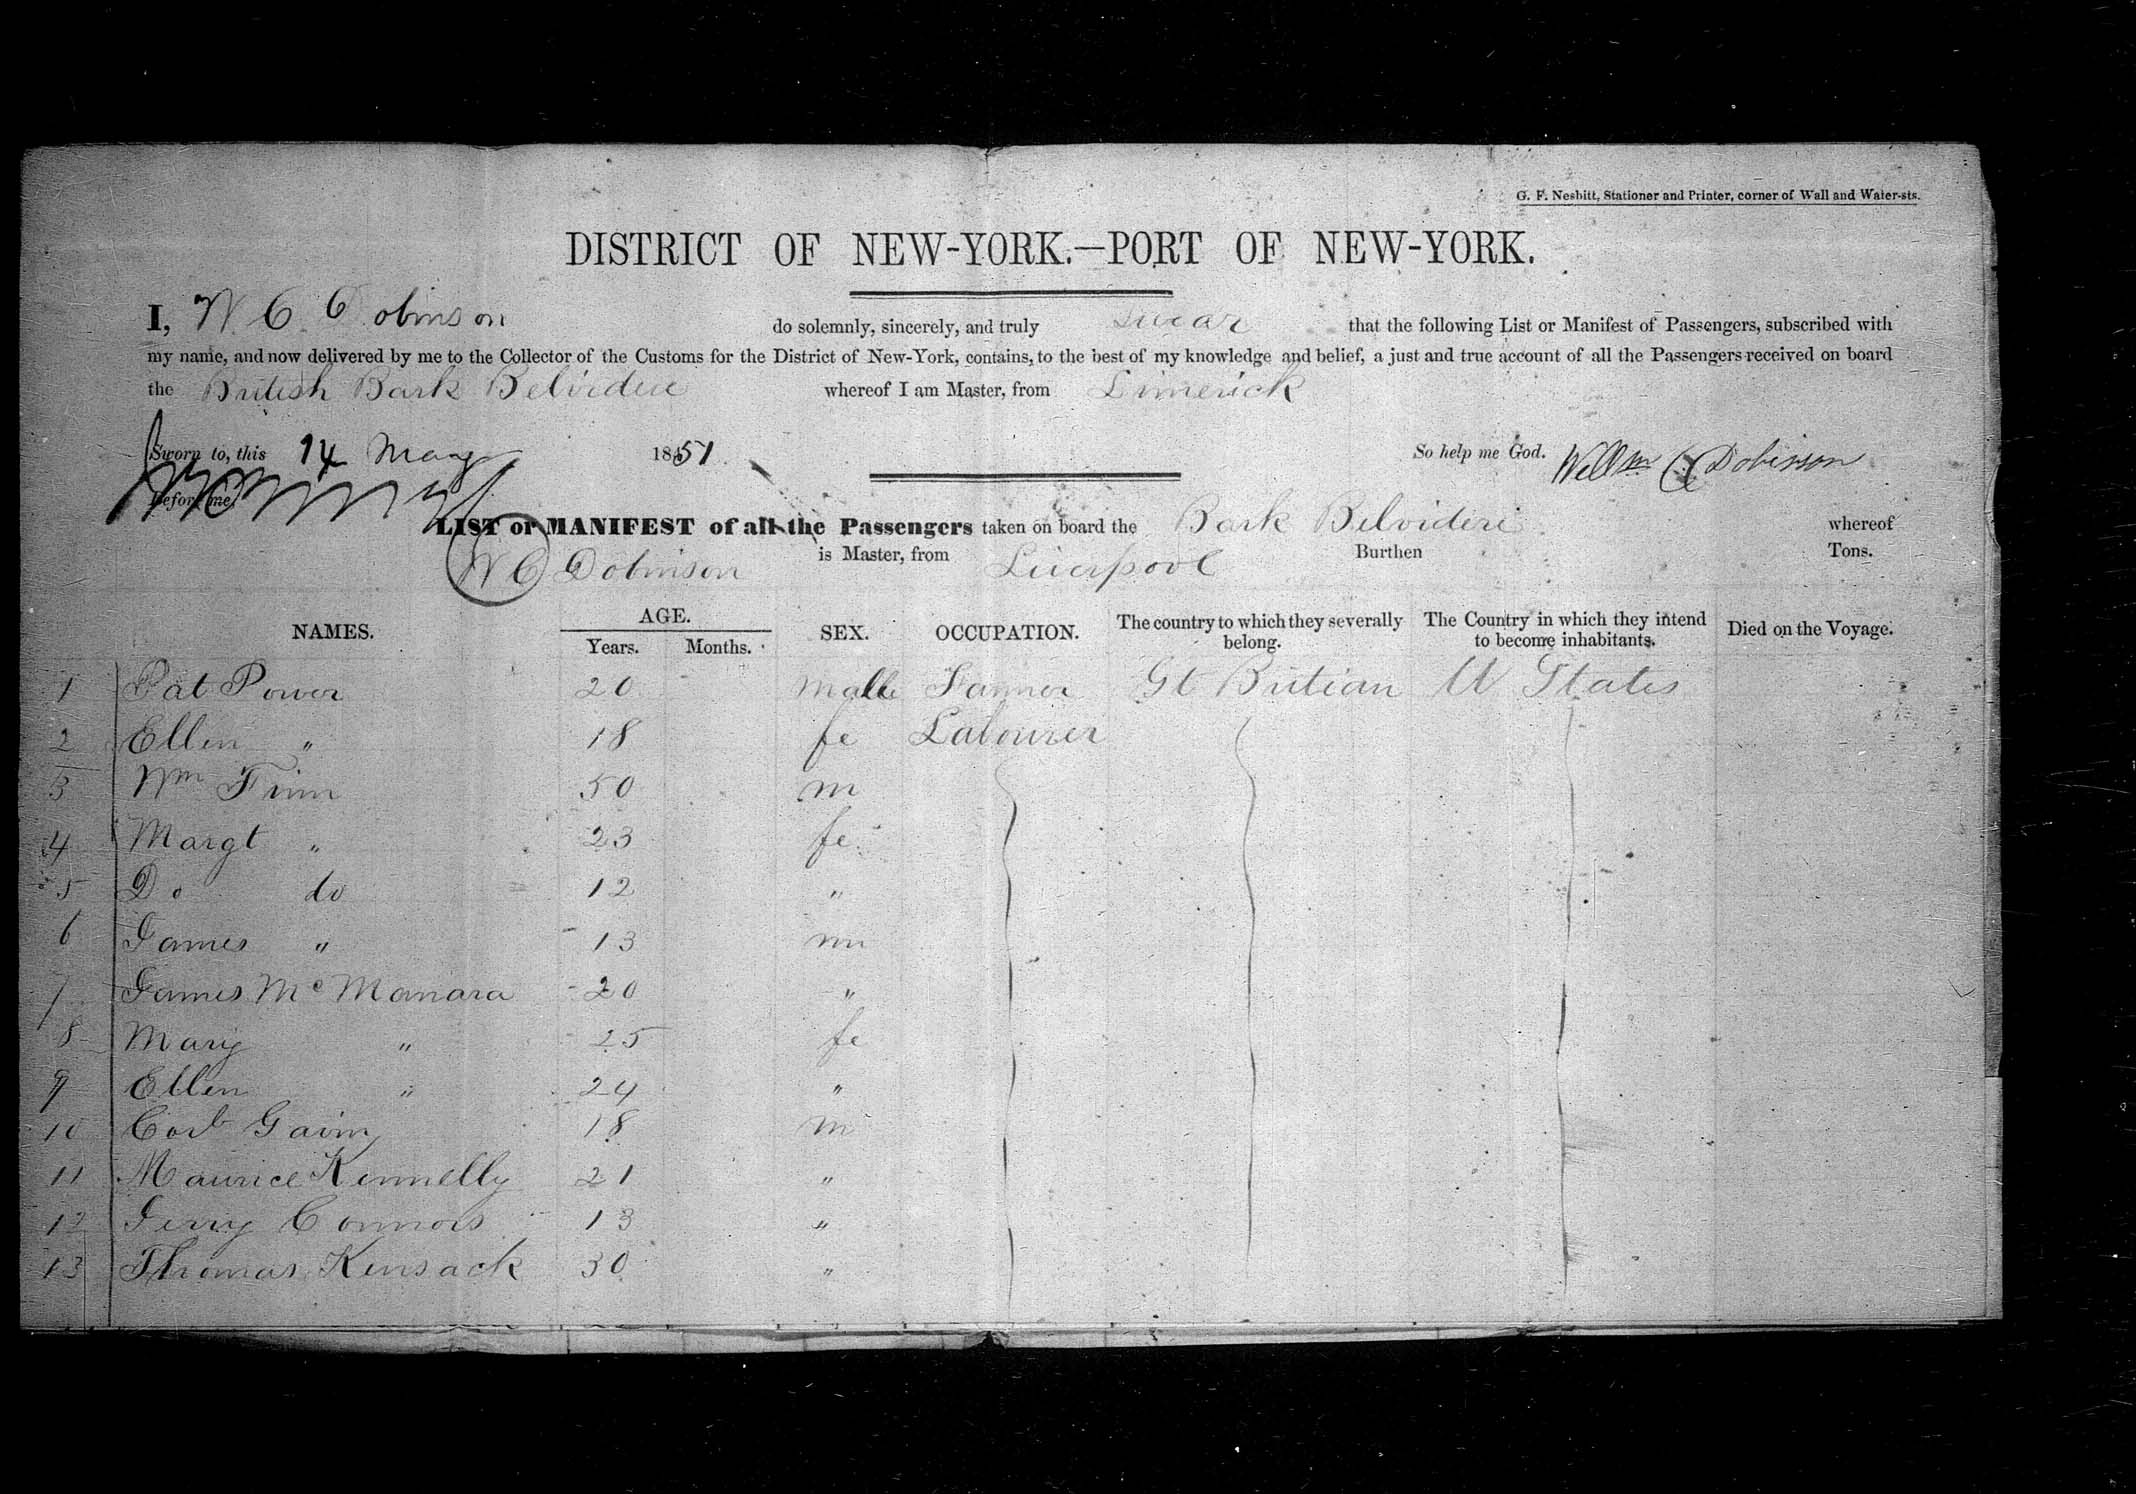 G. F. Nesbitt, Stationer and Printer, corner of Wall and Water-sts.
DISTRICT OF NEW-YORK.—PORT OF NEW-YORK.
I, W C Dobinson do solemnly, sincerely, and truly swear that the following List or Manifest of Passengers, subscribed with
my name, and now delivered by me to the Collector of the Customs for the District of New-York, contains, to the best of my knowledge and belief, a just and true account of all the Passengers received on board
the British Bark Belvidere whereof I am Master, from Limerick
Sworn to, this 14 May 1851 So help me God. Willm C Dobinson
Before me,
LIST or MANIFEST of all the Passengers taken on board the Bark Belvidere whereof
W C Dobinson is Master, from Liverpool Burthen Tons.
NAMES. AGE. SEX. OCCUPATION. The country to which they severally belong. The Country in which they intend to become inhabitants. Died on the Voyage.
Years. Months.
1 Pat Power 20 malle Farmer Gt Britian U States
2 Ellen " 18 fe Labourer
3 Wm Finn 50 m
4 Margt " 23 fe
5 Do do 12 "
6 James " 13 m
7 James McManara 20 "
8 Mary " 25 fe
9 Ellen " 24 "
10 Gavin 18 m
11 Maurice Kennelly 21 "
12 Jerry Connors 13 "
13 Thomas Kensack 30 "